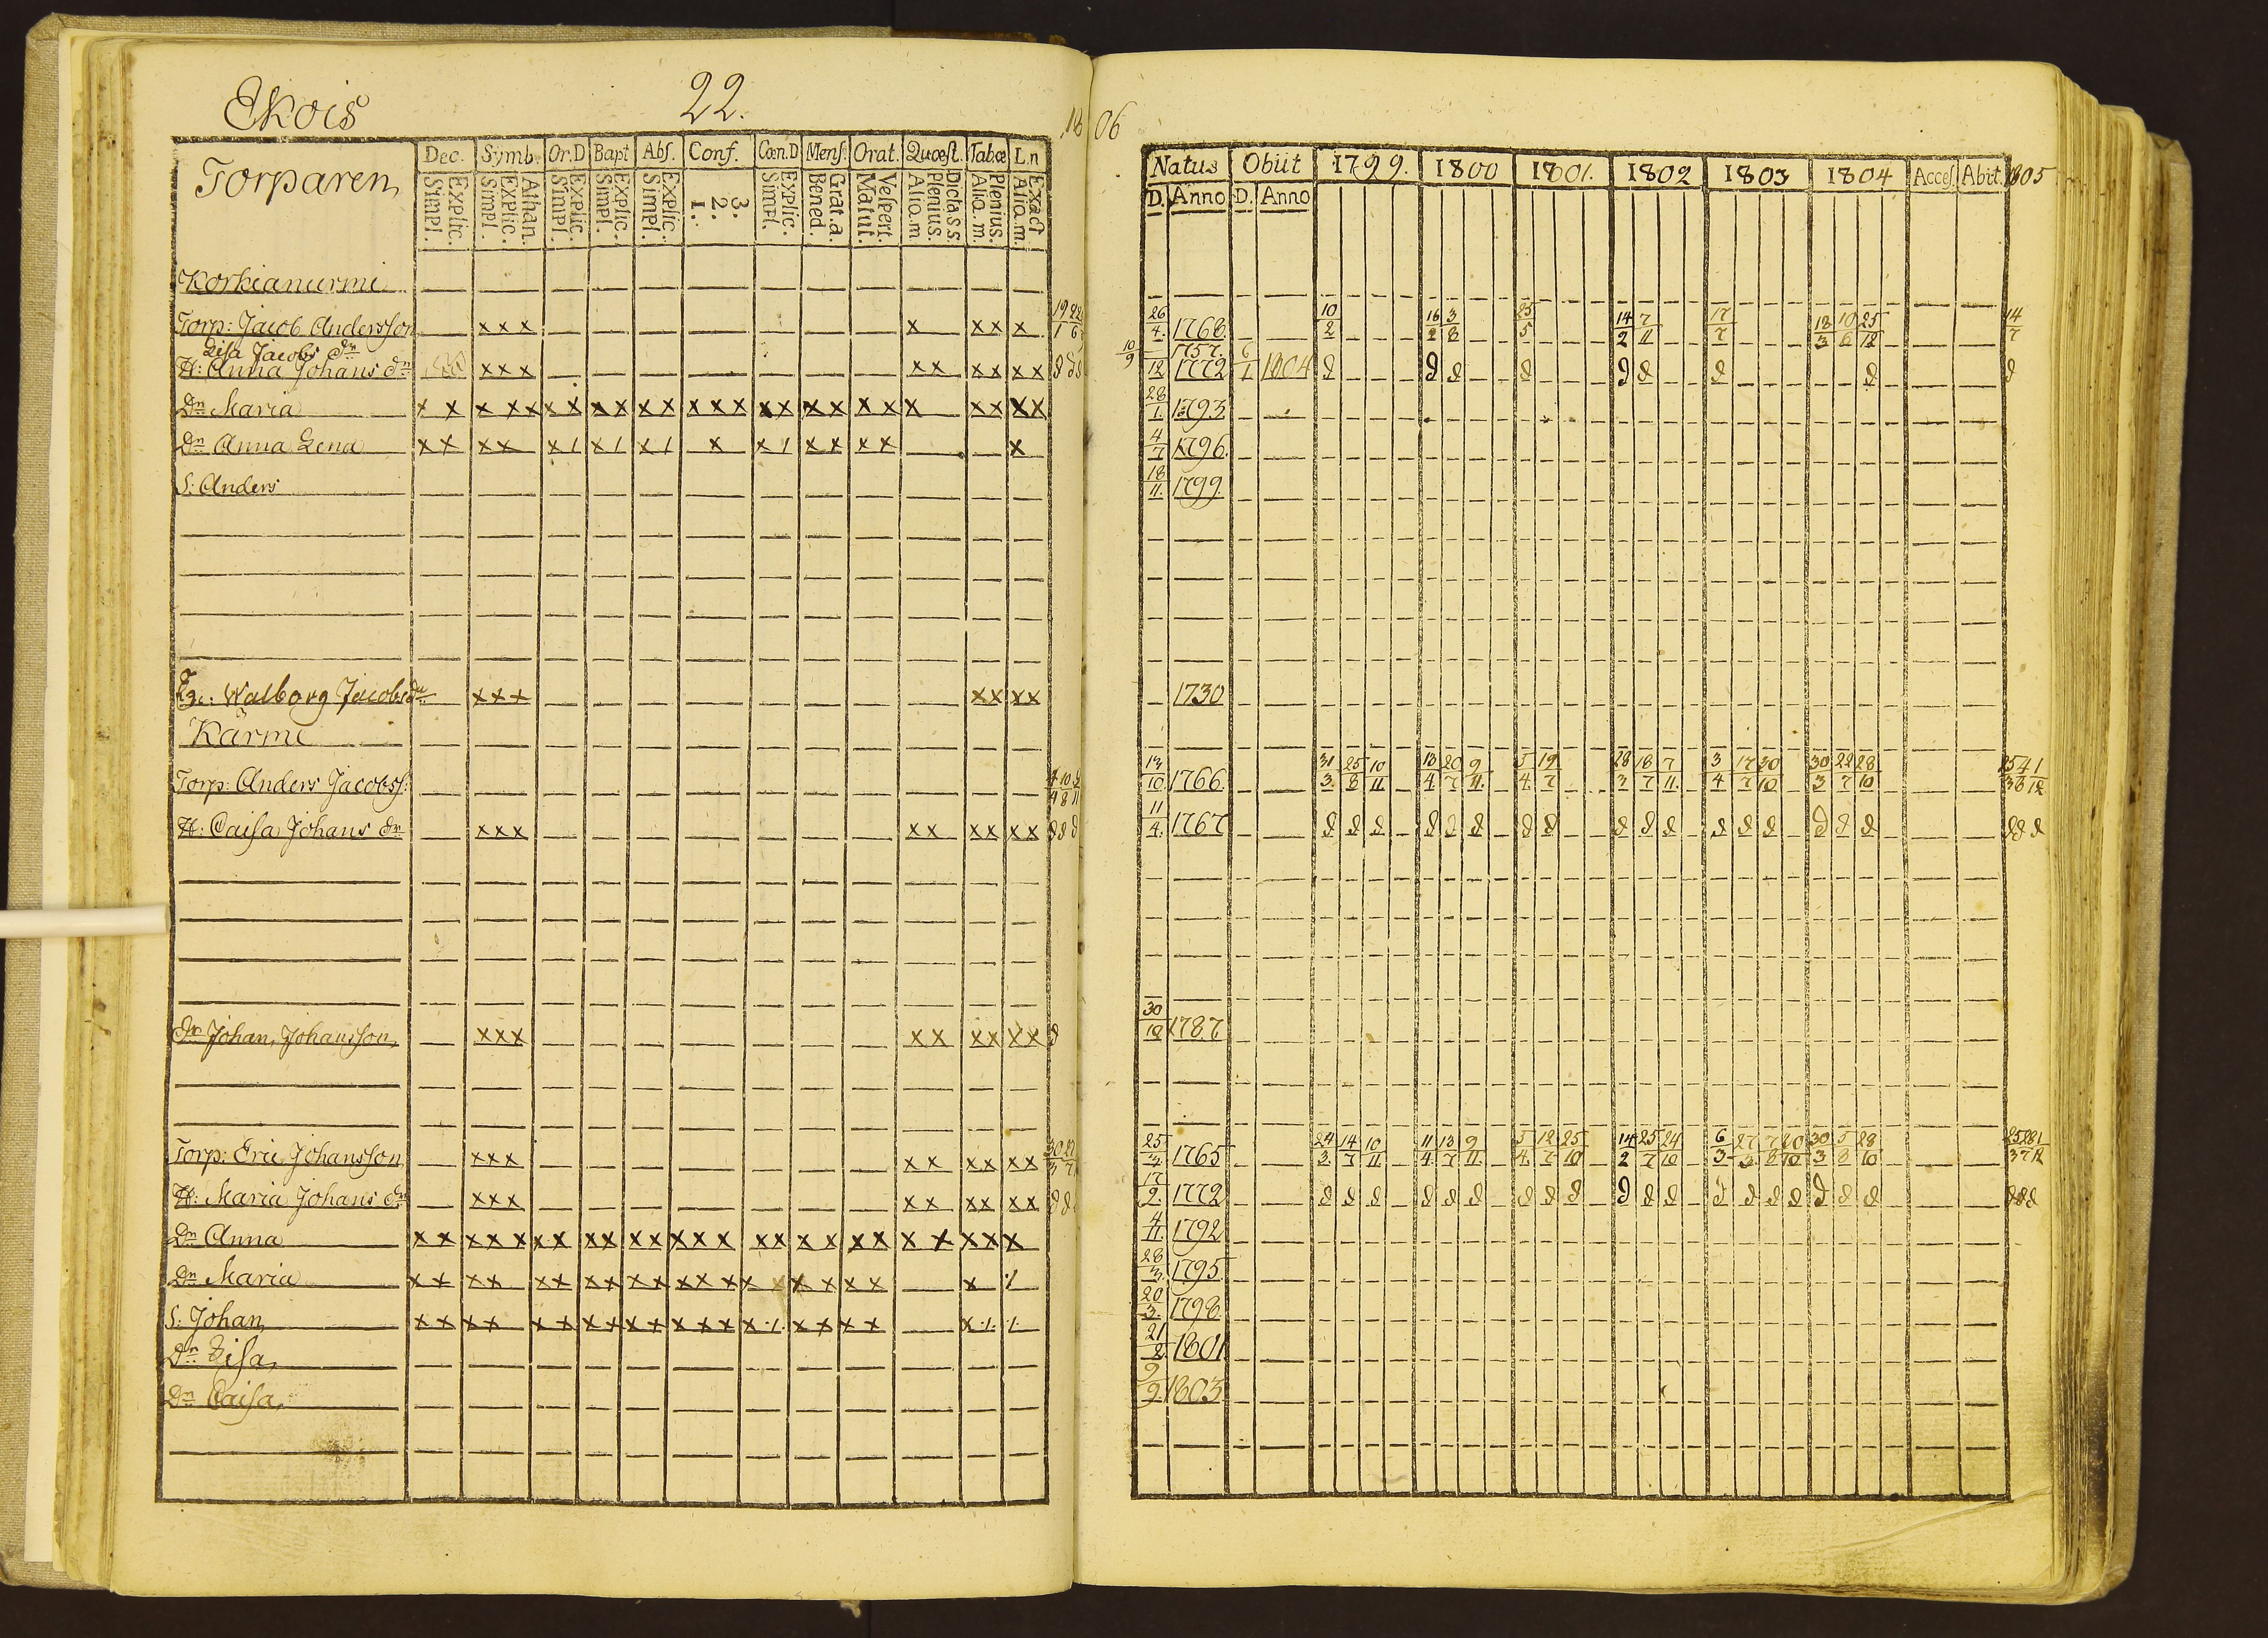 Ekois 22.
Torparen
Dec. Symb. Or.D Bapt Abs. Conf. Cœn.D Mens. Orat. Quæst. Tab.œ L.n
Explic. Simpl. Athan. Explic. Simpl. Explic. Simpl. Explic. Simpl. Explic. Simpl. 3. 2. 1. Explic. Simpl. Grat.a. Bened. Vespert. Matut. Dicta s.s. Plenius. Alio.m Plenius. Alio.m. Exact Alio.m.
Korkianurmi
Torp: Jacob Andersson x x x x x x x
Lisa Jacobs dr
H: Anna Johans dr x x x x x x x x x
Dr Maria x x x x x x x x x x x x x x x x x x x x x x x x x x
Dr Anna Lena x x x x x 1 x 1 x 1 x x 1 x x x x x
S: Anders
Walborg Jacobsdr x x x x x x x
Kärmi
Torp: Anders Jacobss:
H: Caisa Johans dr x x x x x x x x x
Johan Johansson x x x x x x x x x
Torp: Eric Johansson x x x x x x x x x
H: Maria Johans dr x x x x x x x x x
Dr Anna x x x x x x x x x x x x x x x x x x x x x x x x x
Dr Maria x x x x x x x x x x x x x x x x x x x x 1
S: Johan x x x x x x x x x x x x x x 1. x x x x x 1. 1
Dr Lisa
Dr Caisa
1806
Natus Obiit 1799. 1800 1801. 1802 1803 1804 Acces. Abit. 1805
D. Anno D. Anno
26/4. 1768. 10/2 16/2 3/8 25/5 14/2 7/11 17/7 18/3 10/6 25/12 14/7
10/9 1757.
12 1772 6/1 1804
28/1. 1793
4/7 1796.
18/11. 1799
1730
13/10 1766. 31/3. 25/8 10/11 13/4 20/7 9/11. 5/4. 19/7 28/3 18/7 7/11. 3/4 17/7 30/10 30/3 22/7 28/10
11/4. 1767
30/10 1787
25/3 1765 24/3. 14/7 10/11 11/4. 13/7 9/11. 5/4. 12/7 25/10 14/2 25/7 24/10 6/3 27/3 7/8 20/10 30/3 5/8 28/10
17/2. 1772
4/11. 1792
28/3. 1795
20/3. 1798
21/2. 1801
9/9. 1803